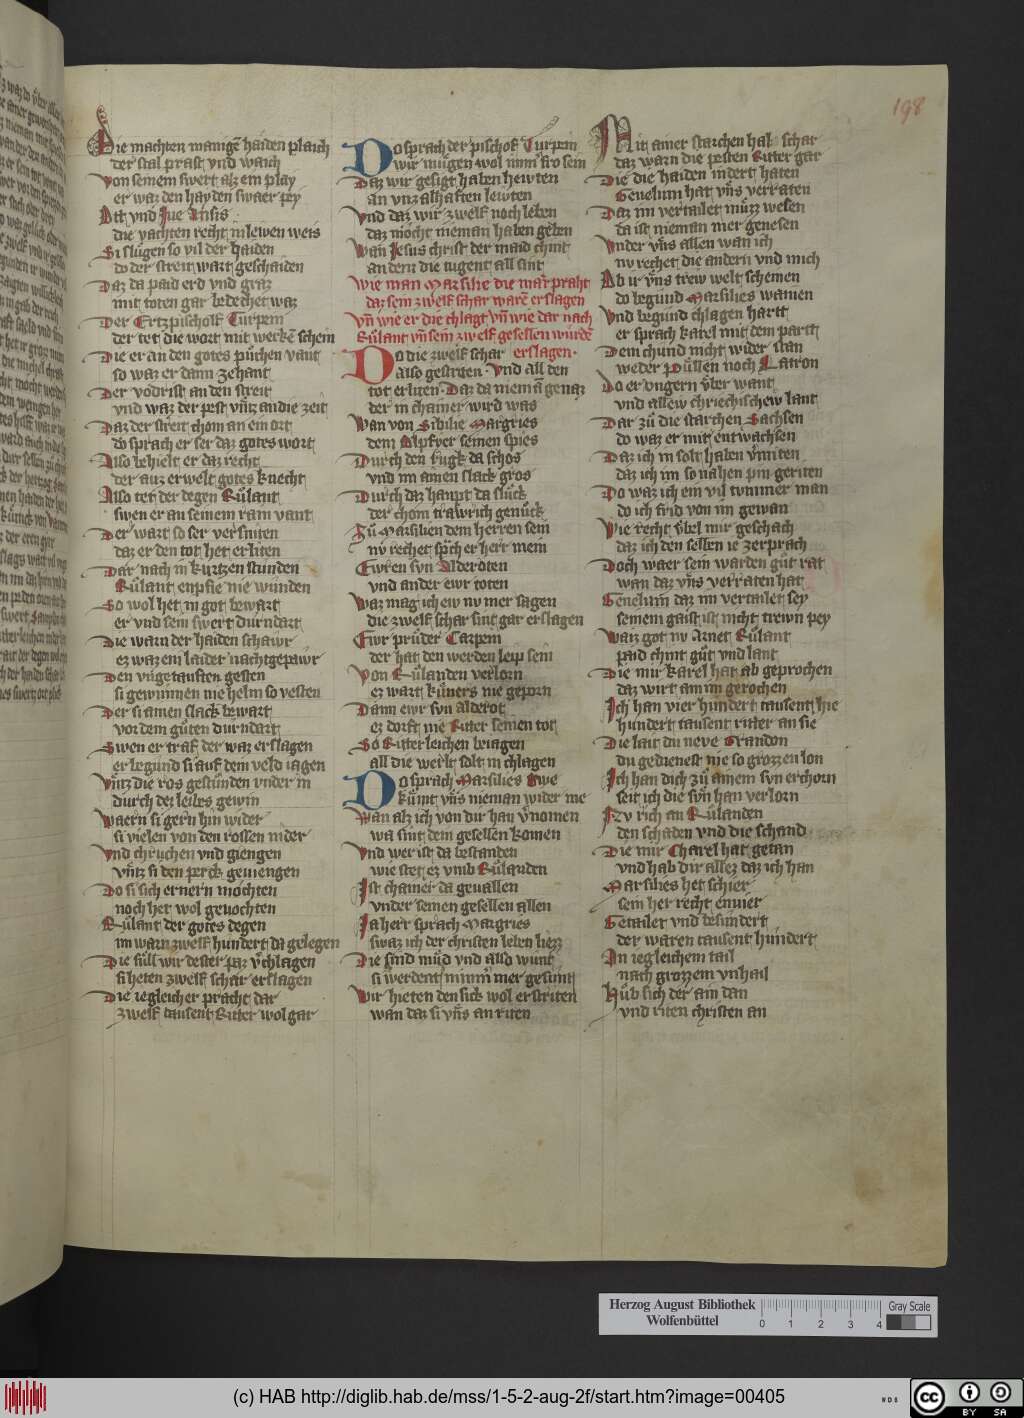 198
Die machten manigē haiden plaich
der stal prast vnd waich
Von seinem swert alz ein play
er waz den hayden swaer pey
Att vnd Jue Ansis
die vachten recht in lewen weis
Si slůgen so vil der haiden
do der streit wart geschaiden
Daz da paid erd vnd graz
mit toten gar bedechet waz
Der Ertzpischolf Turpein
der tet die wort mit werkē schein
Die er an den gotes půchen vant
so waz er dann zehant
Der vodrist an den streit
vnd waz der pest vntz an die zeit
Daz der streit chom an ein ort
do sprach er ser daz gotes wort
Also behielt er daz recht
der auz erwelt gotes knecht
Also tet der degen Růlant
swen er an seinem ram vant
Der wart so ser versniten
daz er den tot het erliten
Dar nach in kurtzen stunden
Růlant enpfie nie wunden
So wol het in got bewart
er vnd sein swert durndart
Die warn der haiden schawr
ez waz ein laider nachtgepawr
Den vngetauften gesten
si gewinnen nie helm so vesten
Der si ainen slack bewart
vor dem gůten durndart
Swen er traf der waz erslagen
er begund si auf dem veld iagen
Vntz die ros gestůnden vnder in
durch dez leibes gewin
Waern si gern hin wider
si vielen von den rossen nider
Vnd chruchen vnd giengen
vntz si den perck geuiengen
Do si sich ernern mochten
noch het wol geuochten
Růlant der gotes degen
im warn zwelf hundert da gelegen
Die sůll wir dester paz v̊chlagen
si heten zwelf schar erslagen
Die iegleicher pracht dar
zwelf tausent Ritter wol gar
Do sprach der pischof Turpein
wir mugen wol nim̄ fro sein
Daz wir gesigt haben hewten
an vnz alhaften lewten
Vnd daz wir zwelf noch leben
daz mocht nieman haben geben
Wan Jesus christ der maid chint
an dem die tugent all sint
Wie man Marsilie die mār praht
daz sein zwelf schar warē erslagen
Vn̄ wie er die chlagt vn̄ wie dar nach
Růlant vn̄ sein zwelf gesellen wurdē
erslagen.
Do die zwelf schar
also gestriten. Vnd all den
tot erliten. Daz da niemā genaz
der in chainer wird was
Wan von Sibilie Margries
dem Alpfver seinen spies
Durch den ſugk da schos
vnd im ainen slack gros
Durch daz haupt da slůck
der chom trawrich genůck
Zů Marsilien dem herren sein
nv rechet sp̄ch er herr mein
Ewren svn Alderoten
vnd ander ewr toten
Waz mag ich ew nv mer sagen
die zwelf schar sint gar erslagen
Ewr průder Carpein
der hat den werden leip sein
Von Růlanden verlorn
ez wart kůners nie geporn
Dann ewr svn Alderot
ez dorft nie Ritter seinen tot
So Ritterleichen beiagen
all die werlt solt in chlagen
Do sprach Marsilies Awe
kůmt vns nieman wider me
Wan alz ich von dir han v̊nomen
wa sint dein gesellen komen
Vnd wer ist da bestanden
wie stet ez vmb Růlanden
Ist chainer da geuallen
vnder seinen gesellen allen
Ja herr sprach Margries
swaz ich der christen leben liezz
Die sind můd vnd also wunt
si werdent nimm̄ mer gesunt
Wir hieten den sick wol erstriten
wan daz si vns an riten
Mit ainer starchen hal schar
daz warn die pesten Ritter gar
Die die haiden indert haten
Genelum hat vns verraten
Daz im vertailet můzz wesen
da ist nieman mer genesen
Vnder vns allen wan ich
nv rechet die andern vnd mich
Ab ir vns trew welt scheinen
do begund Marsilies wainen
Vnd begund chlagen hartt
er sprach karel mit dem partt
Dem chund nicht wider stan
weder Půllen noch Latron
Do er vngern v̊ber want
vnd allew chriechischew lant
Dar zů die starchen Sachsen
do waz er mit entwachsen
Daz ich in solt haben v̊miten
daz ich im so nahen pin geriten
Do waz ich ein vil tummer man
do ich frid von im gewan
Wie recht v̊bel mir geschach
daz ich den sellen ie zerprach
Doch waer sein warden gůt rat
wan daz vns verraten hat
Genelum daz im vertailet sey
seinem gaist ist nicht trewn pey
Waiz got nv Arnet Růlant
paid chint gůt vnd lant
Die mir karel hat ab geprochen
daz wirt an im gerochen
Ich han vier hundert tausent hie
hundert tausent ritter an sie
Die lait du neve Grandon
du gedienest nie so grozzen lon
Ich han dich zů ainem svn erchorn
seit ich die svn han verlorn
Nv rich an Růlanden
den schaden vnd die schand
Die mir Charel hat getan
vnd hab dir allez daz ich han
Marsilies het schier
sein her recht enuier
Getailet vnd besundert
der waren tausent hundert
An iegleichem tail
nach grozzem vnhail
Hůb sich der ain dan
vnd riten christen an
Herzog August Bibliothek
Wolfenbüttel
0 1 2 3 4
Gray Scale
(c) HAB http://diglib.hab.de/mss/1-5-2-aug-2f/start.htm?image=00405
WDB
cc BY SA